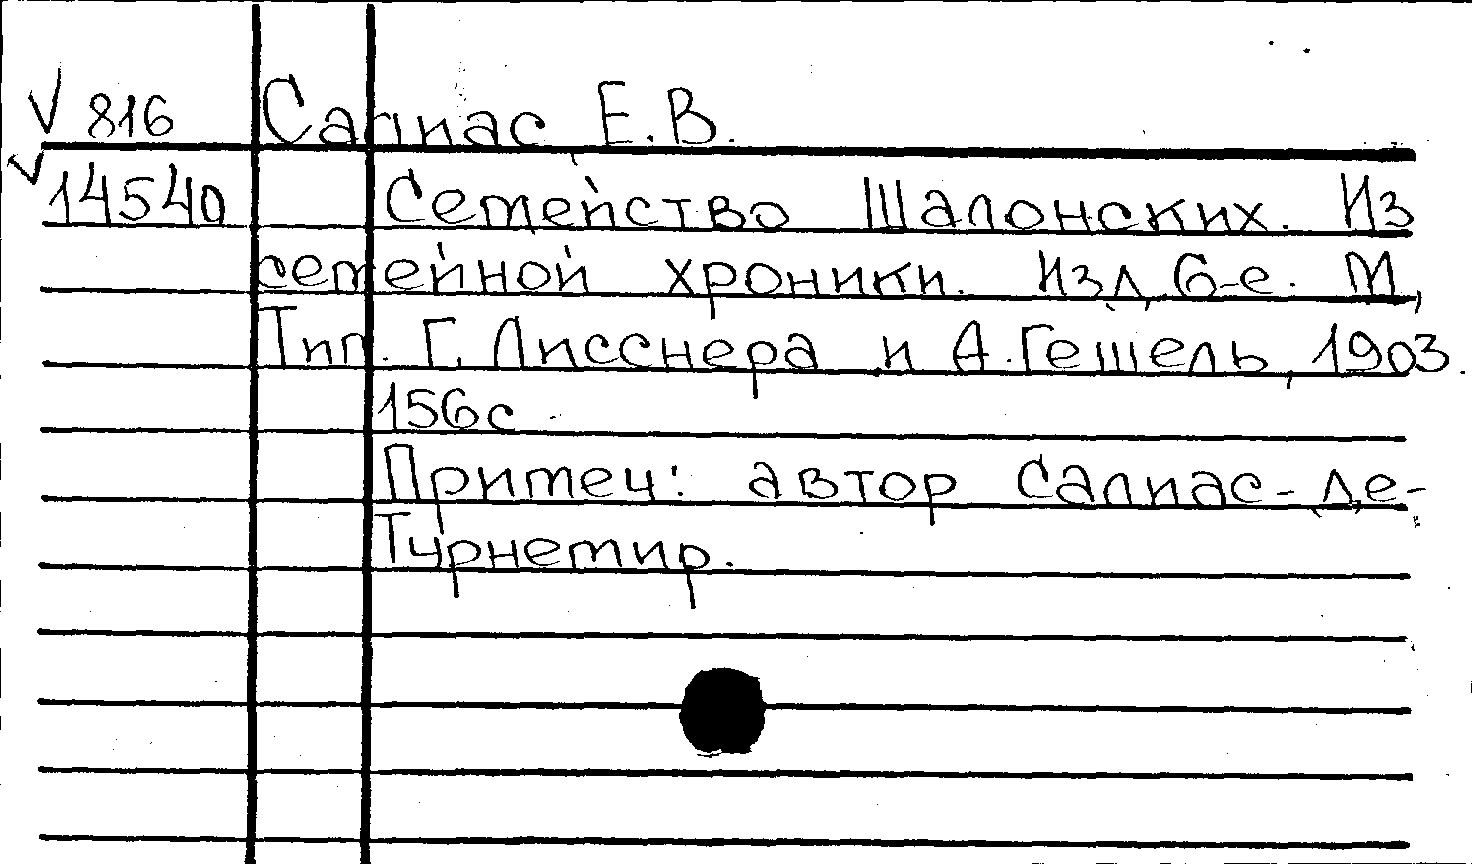 V 816 Салиас Е.В.
V 14540 Семейство Шалонских. Из
семейной хроники. Изд. 6-е. М.,
Тип. Г. Лисснера и А.Гешель, 1903.
156с.
Примеч: автор Салиас-де-
Турнемир.